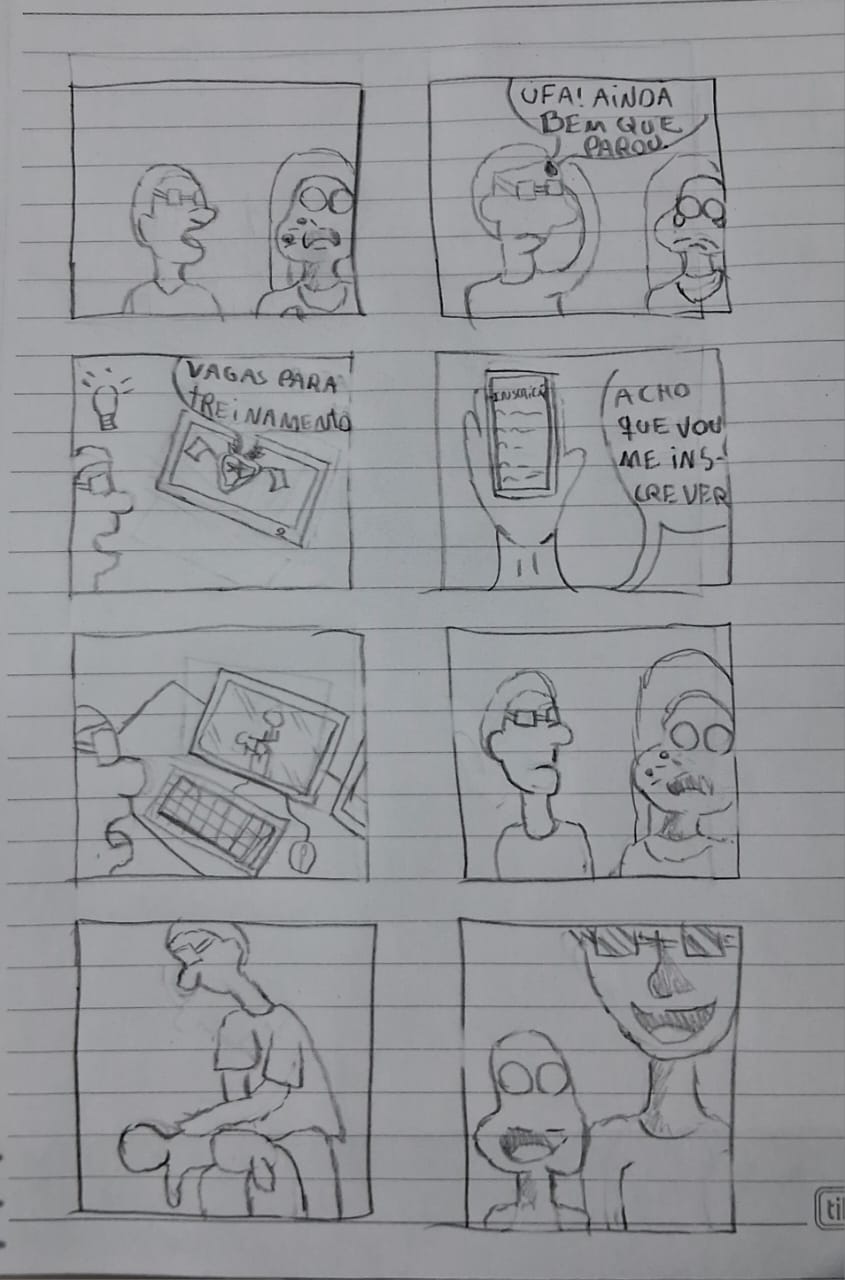 UFA! AINDA
BEM QUE
PAROU.
VAGAS PARA
TREINAMENTO
INSCRIÇÃ
ACHO
QUE VOU
ME INS-
CREVER
til